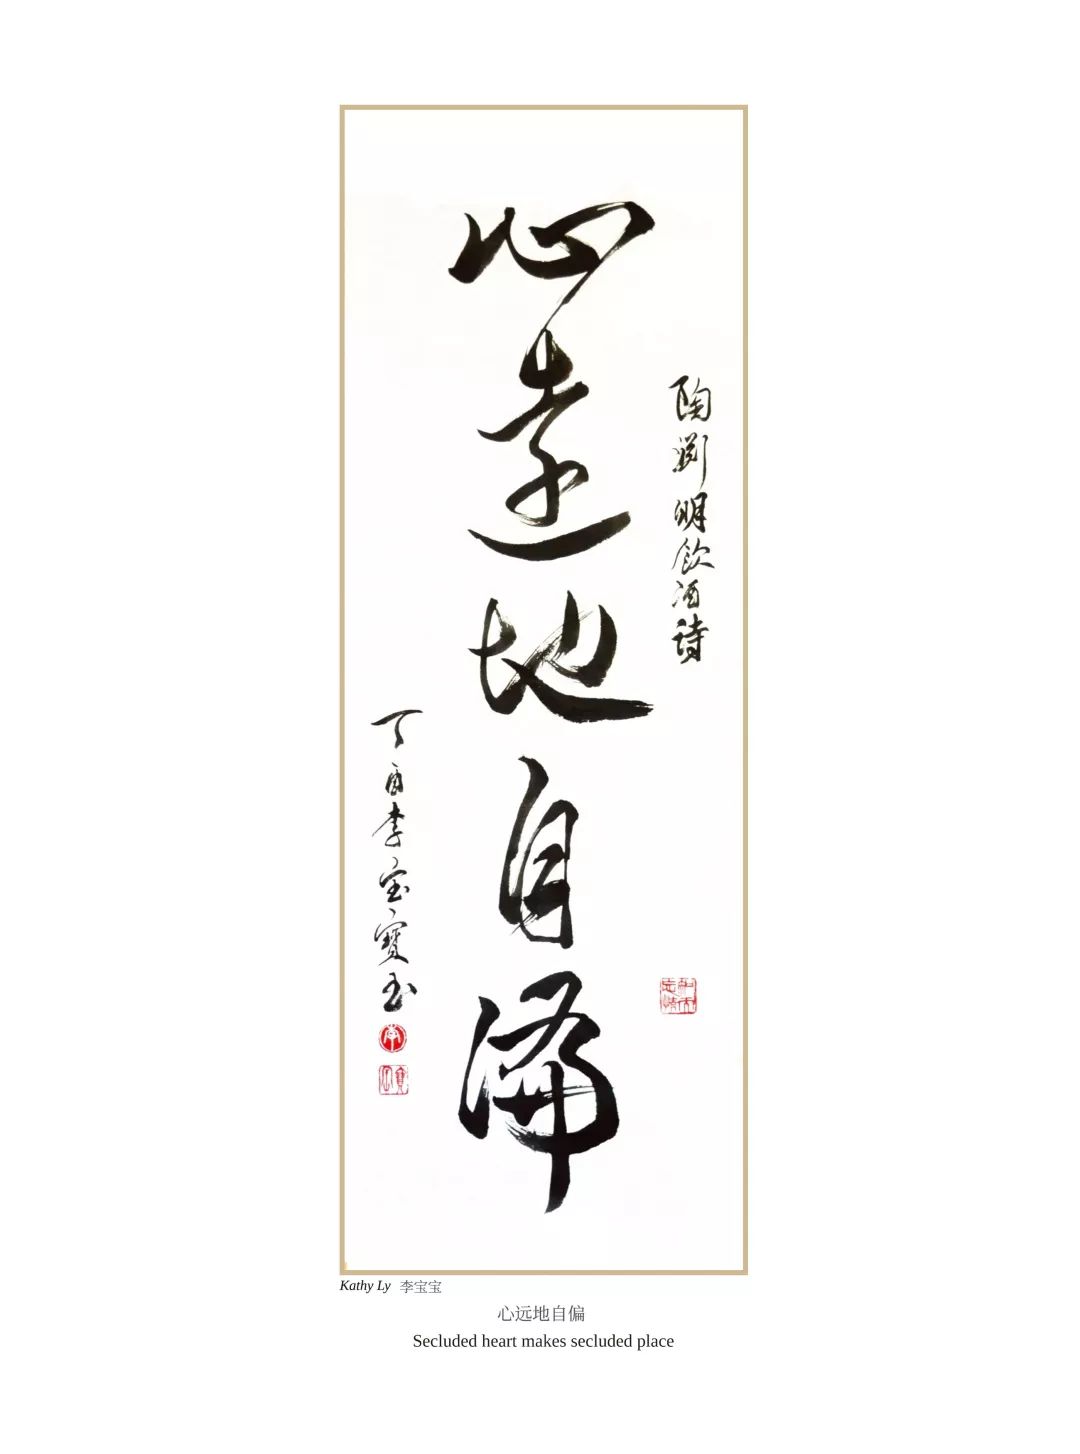 陶渊明飲酒诗
心遠地自偏
丁酉李宝寶书
Kathy Ly 李宝宝
心远地自偏
Secluded heart makes secluded place